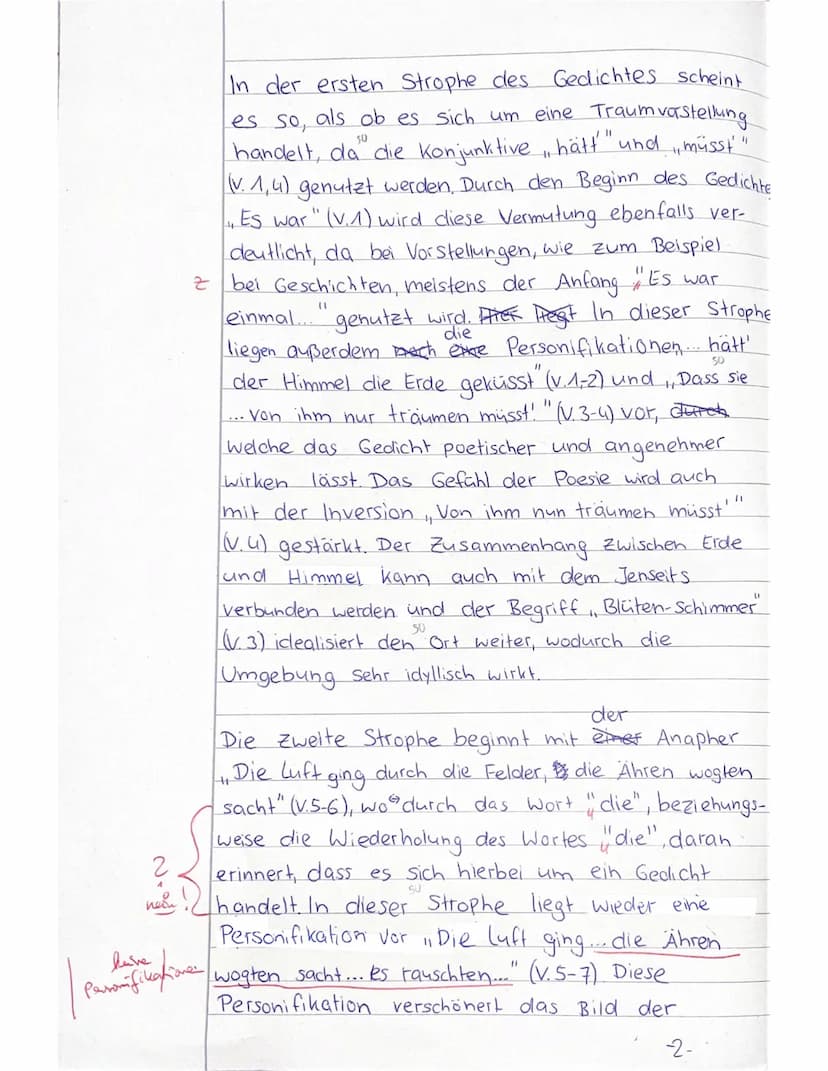 In der ersten Strophe des Gedichtes scheint
es so, als ob es sich um eine Traumvorstellung
so
handelt, da die Konjunktive „hätt'" und „müsst'"
(V. 1,4) genutzt werden. Durch den Beginn des Gedichte
„Es war" (V.1) wird diese Vermutung ebenfalls ver-
deutlicht, da bei Vorstellungen, wie zum Beispiel
z bei Geschichten, meistens der Anfang "Es war
einmal..." genutzt wird. Hier liegt In dieser Strophe
die
liegen außerdem noch eine Personifikationen „... hätt'
so
der Himmel die Erde geküsst" (V.1-2) und „Dass sie
... von ihm nur träumen müsst'." (V.3-4) vor, durch
welche das Gedicht poetischer und angenehmer
wirken lässt. Das Gefühl der Poesie wird auch
mit der Inversion „Von ihm nun träumen müsst'"
(V.4) gestärkt. Der Zusammenhang zwischen Erde
und Himmel kann auch mit dem Jenseits
verbunden werden und der Begriff „Blüten-Schimmer"
so
(V.3) idealisiert den Ort weiter, wodurch die
Umgebung sehr idyllisch wirkt.
der
Die zweite Strophe beginnt mit einer Anapher
„Die Luft ging durch die Felder, die Ähren wogten
sacht" (V.5-6), wodurch das Wort "die", beziehungs-
weise die Wiederholung des Wortes "die", daran
erinnert, dass es sich hierbei um ein Gedicht
?
nein!
so
handelt. In dieser Strophe liegt wieder eine
Personifikation vor „Die Luft ging... die Ähren
keine
Personifikationen
wogten sacht... es rauschten..." (V.5-7) Diese
Personifikation verschönert das Bild der
-2-